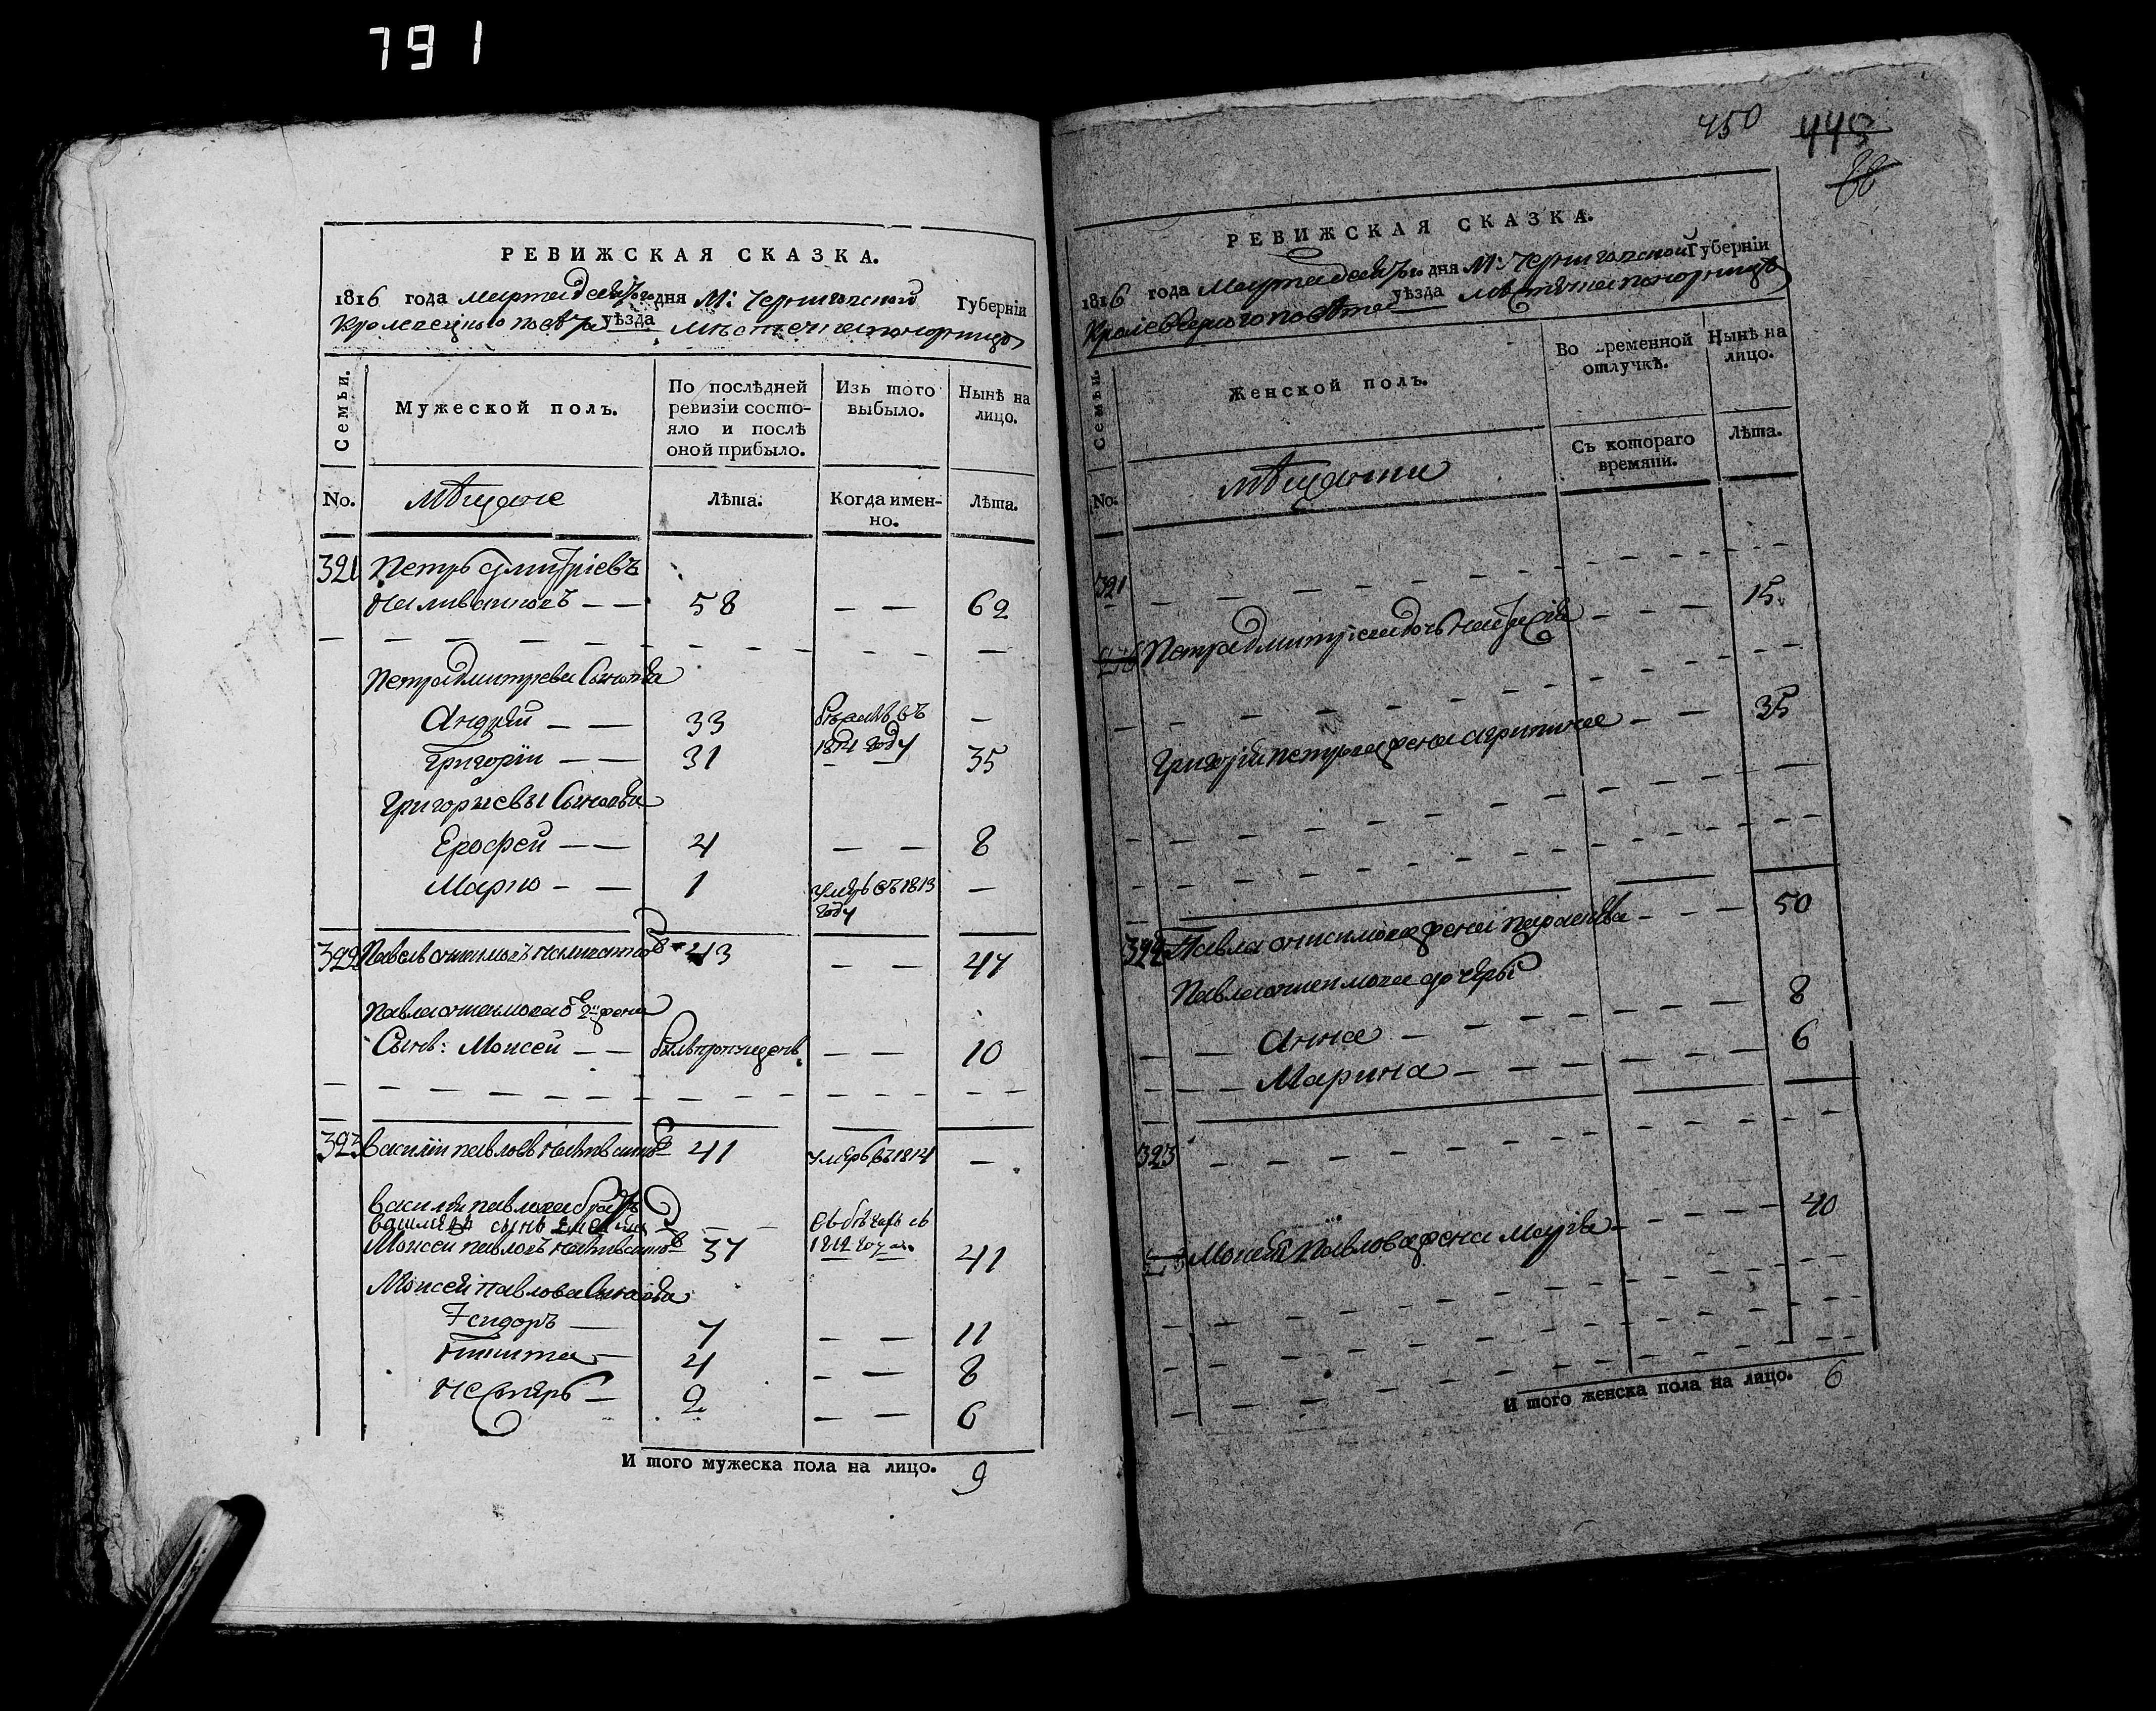 791
РЕВИЖСКАЯ СКАЗКА.
1816 года марта десятого дня М: Черниговской Губерніи
Кролевецкого повѣта уѣзда
Семьи.
Мужеской полъ.
По послѣдней ревизіи состо-
яло и послѣ
оной прибыло.
Изъ того
выбыло.
Нынѣ на
лицо.
No.
Мѣщане
Лѣта.
Когда имен-
но.
Лѣта.
321 Петръ Дмитріевъ
58 — — 62
Петра Дмитрева Сыновья
Андрей — — 33 —
1814 году
Григорій — — 31 — — 35
Григориевы Сыновья
Ерофей — — 4 — — 8
Марко — — 1 умеръ въ 1813 —
году
322 Павелъ 43 — — 47
Павла 2й жены
Сынъ: Моисей — — — — 10
323 Василій Павловъ 41 умеръ въ 1814 —
Василия Павлова братъ
сынъ
Моисей Павловъ 37 1812 года 41
Моисея Павлова Сыновья
Ісидоръ — 7 — — 11
Никита — 4 — — 8
Несперъ — 2 — — 6
И того мужеска пола на лицо. 9
450 448
88
РЕВИЖСКАЯ СКАЗКА.
1816 года Марта десятого дня М: Черниговской Губерніи
Кролевецкого повѣта уѣзда
Семьи.
Женской полъ.
Во временной
отлучкѣ.
Нынѣ на
лицо.
No.
Мѣщанки
Съ котораго
времяни.
Лѣта.
321
Петра Дмитріева дочь — — — 15
Григорія Петрова жена Агрипина — — 35
322 Павла Онисимова жена Парасковья — — — 50
Павла Онисимова дочери
Анна — 8
Марина — 6
323
Моисея Павлова жена Марфа — 40
И того женска пола на лицо. 6